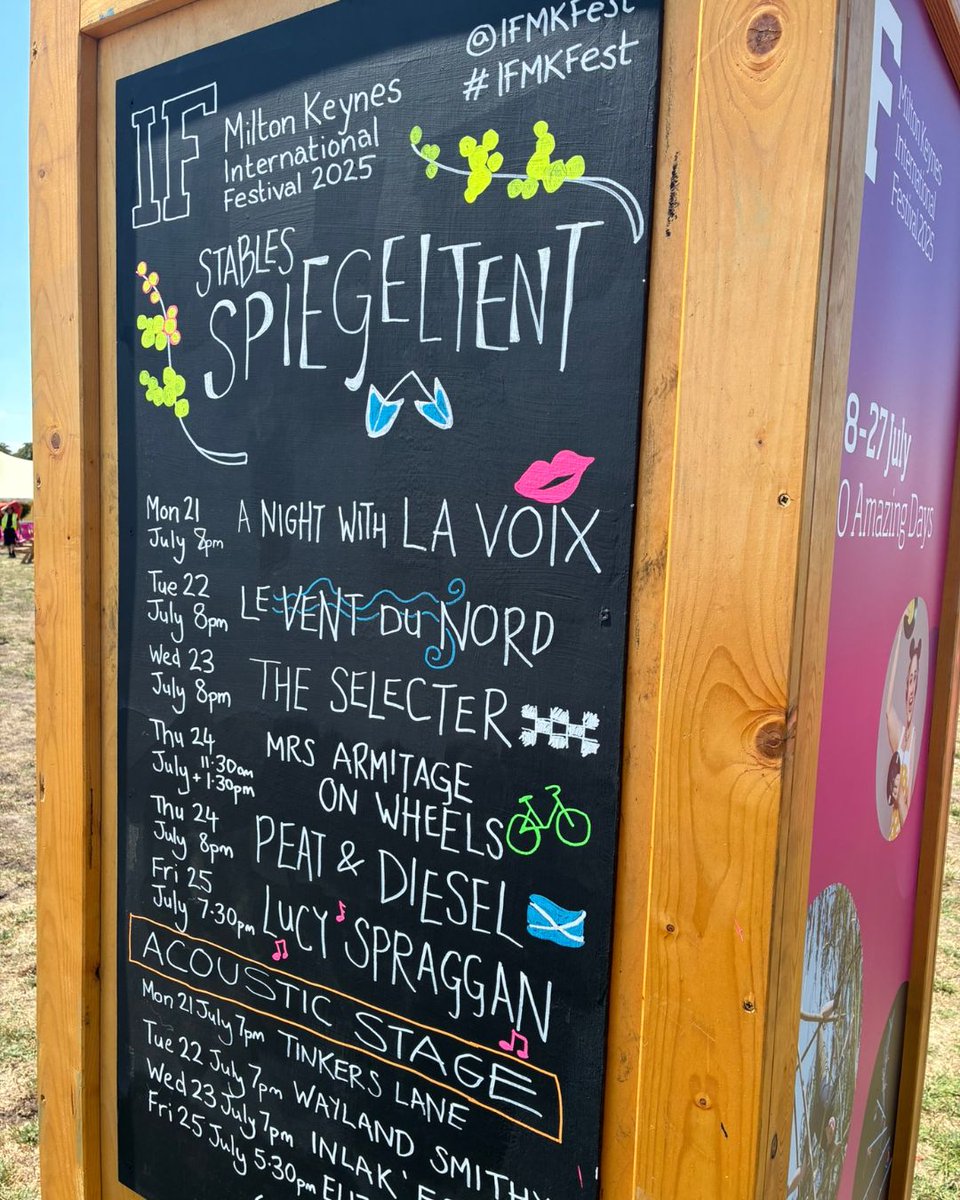 @IFMKFest
#IFMKFest
IF
Milton Keynes
International
Festival 2025
STABLES
SPIEGELTENT
Mon 21
July 8pm
A NIGHT WITH LA VOIX
Tue 22
July 8pm
LE VENT DU NORD
Wed 23
July 8pm
THE SELECTER
Thu 24
July 11.30am
+ 1.30pm
MRS ARMITAGE
ON WHEELS
Thu 24
July 8pm
PEAT & DIESEL
Fri 25
July 7.30pm
LUCY SPRAGGAN
ACOUSTIC STAGE
Mon 21 July 7pm TINKERS LANE
Tue 22 July 7pm WAYLAND SMITHY
Wed 23 July 7pm INLAK'
Fri 25 July 5.30pm
Milton Keynes
International
Festival 2025
8-27 July
0 Amazing Days